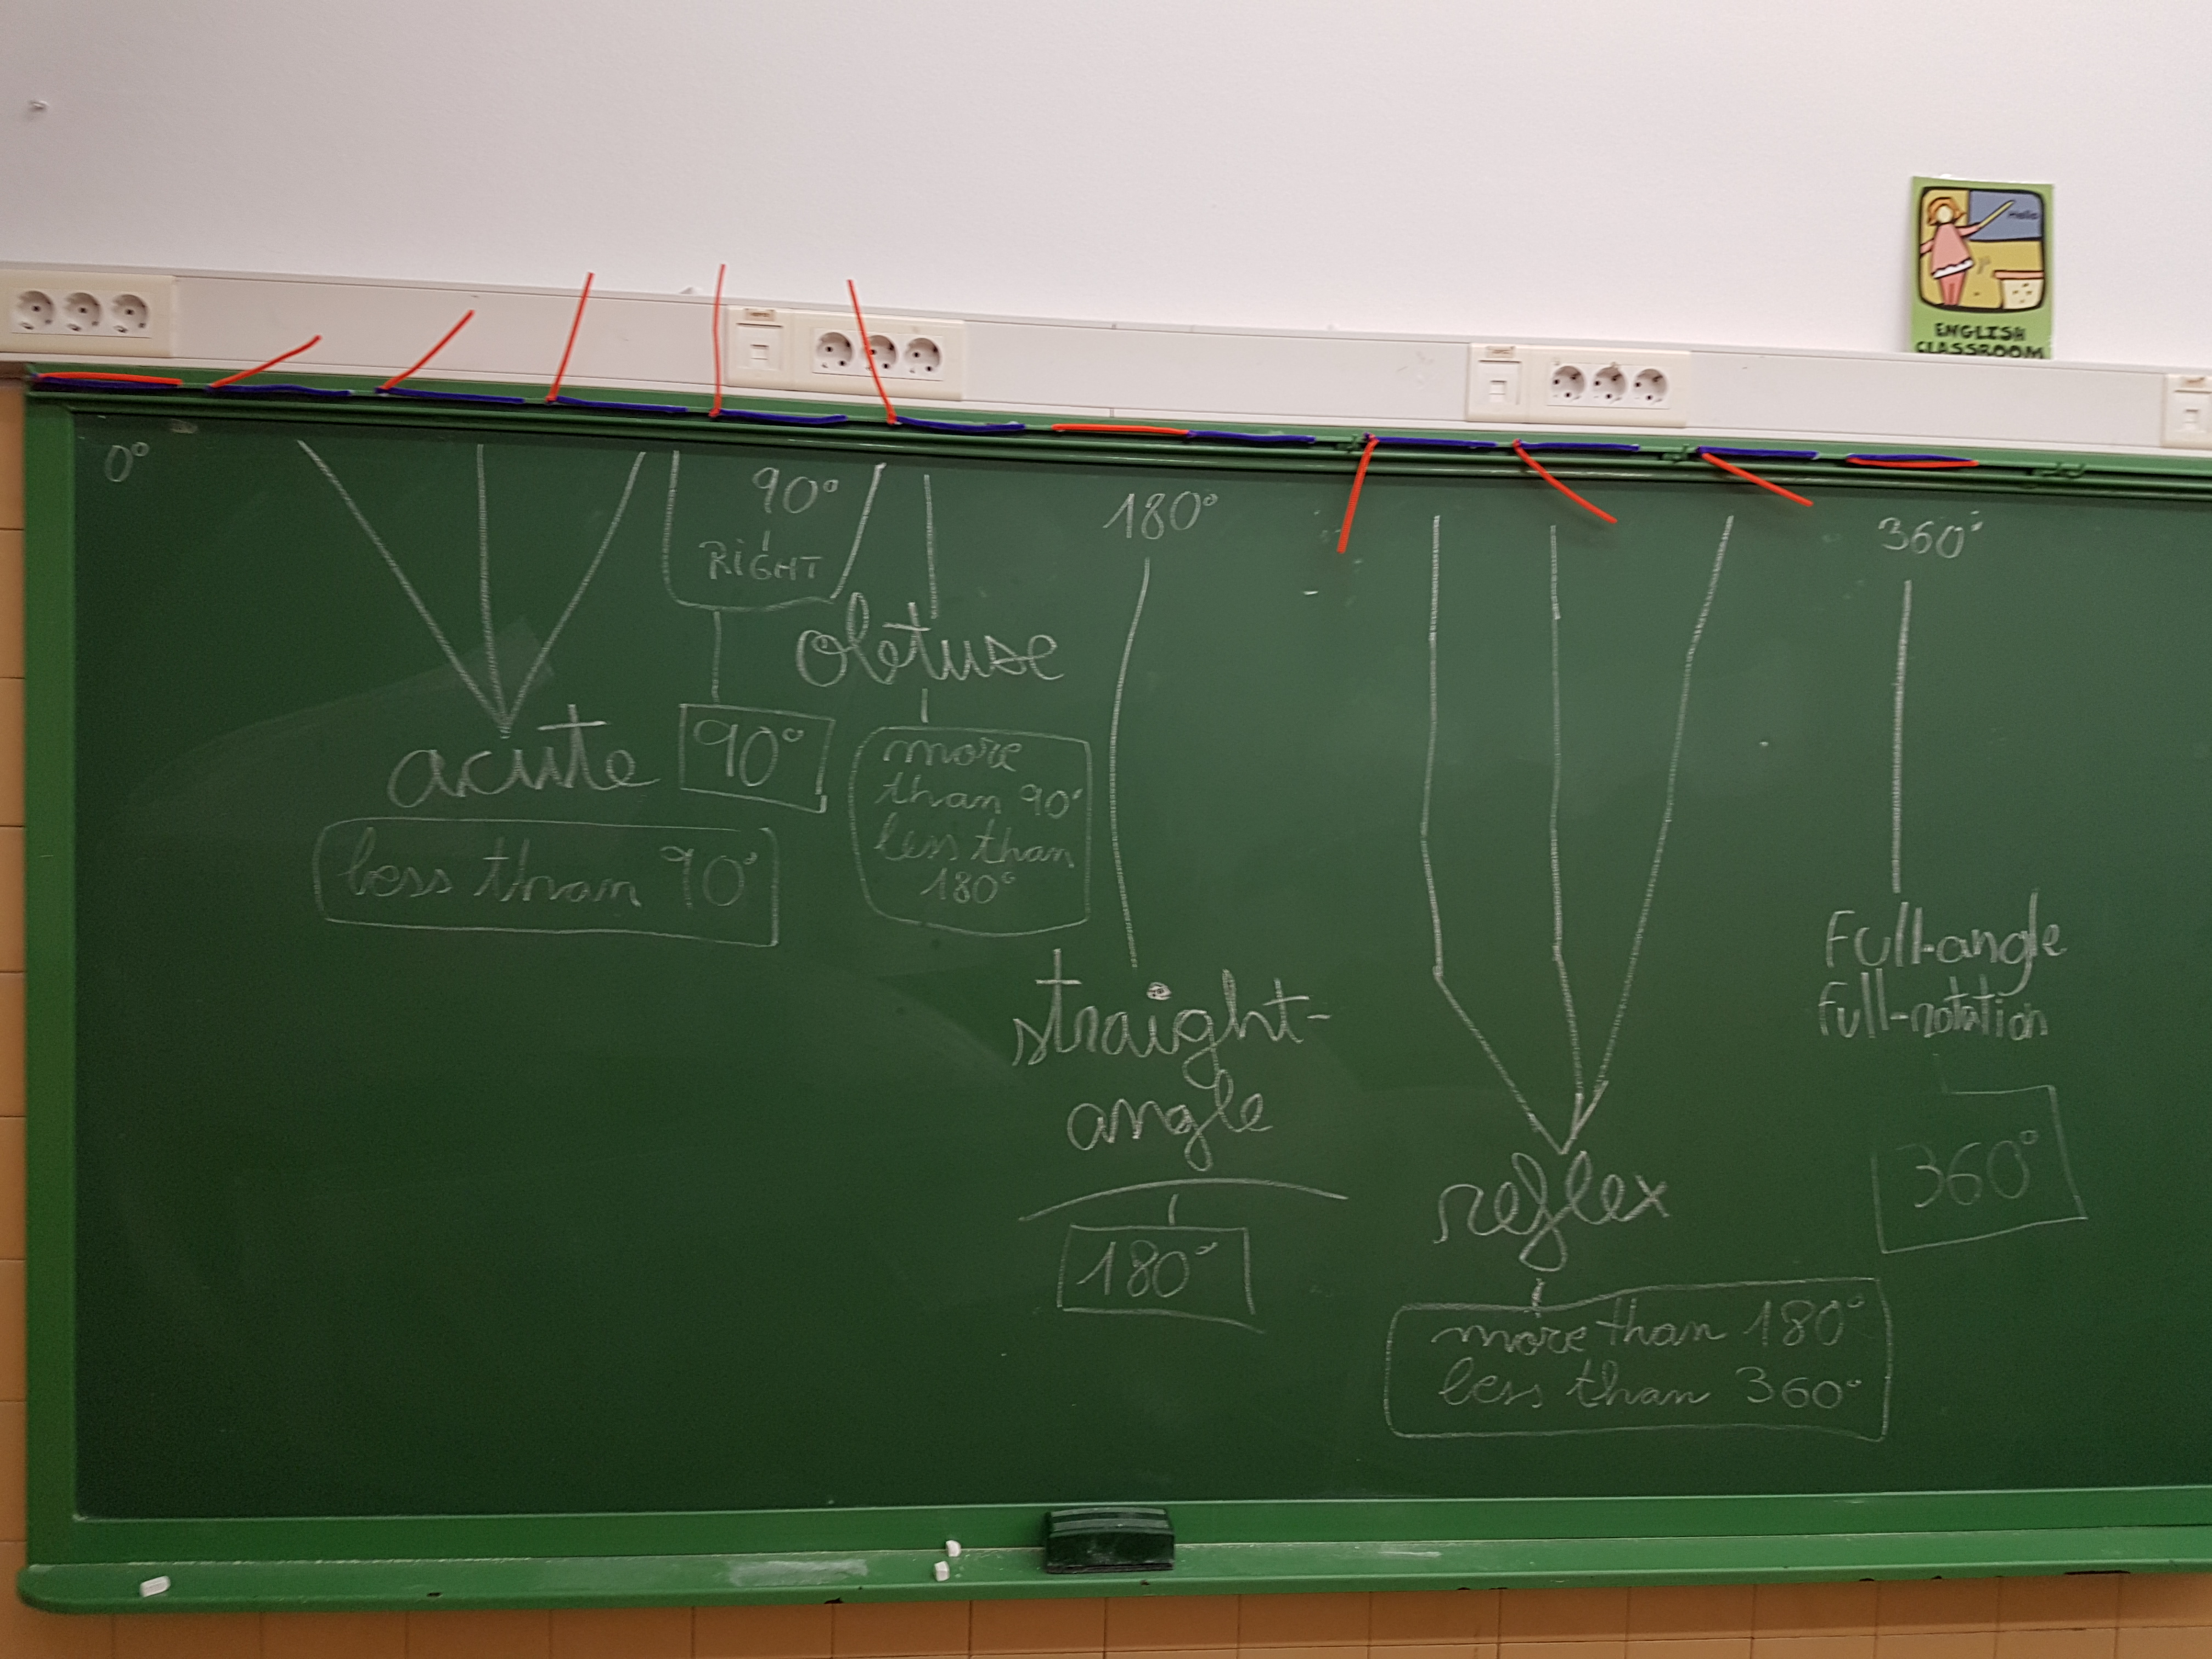 Hello
ENGLISH
CLASSROOM
0°
90°
RIGHT
90°
acute
less than 90°
obtuse
more
than 90°
less than
180°
180°
straight-
angle
180°
reflex
more than 180°
less than 360°
360°
Full-angle
Full-rotation
360°